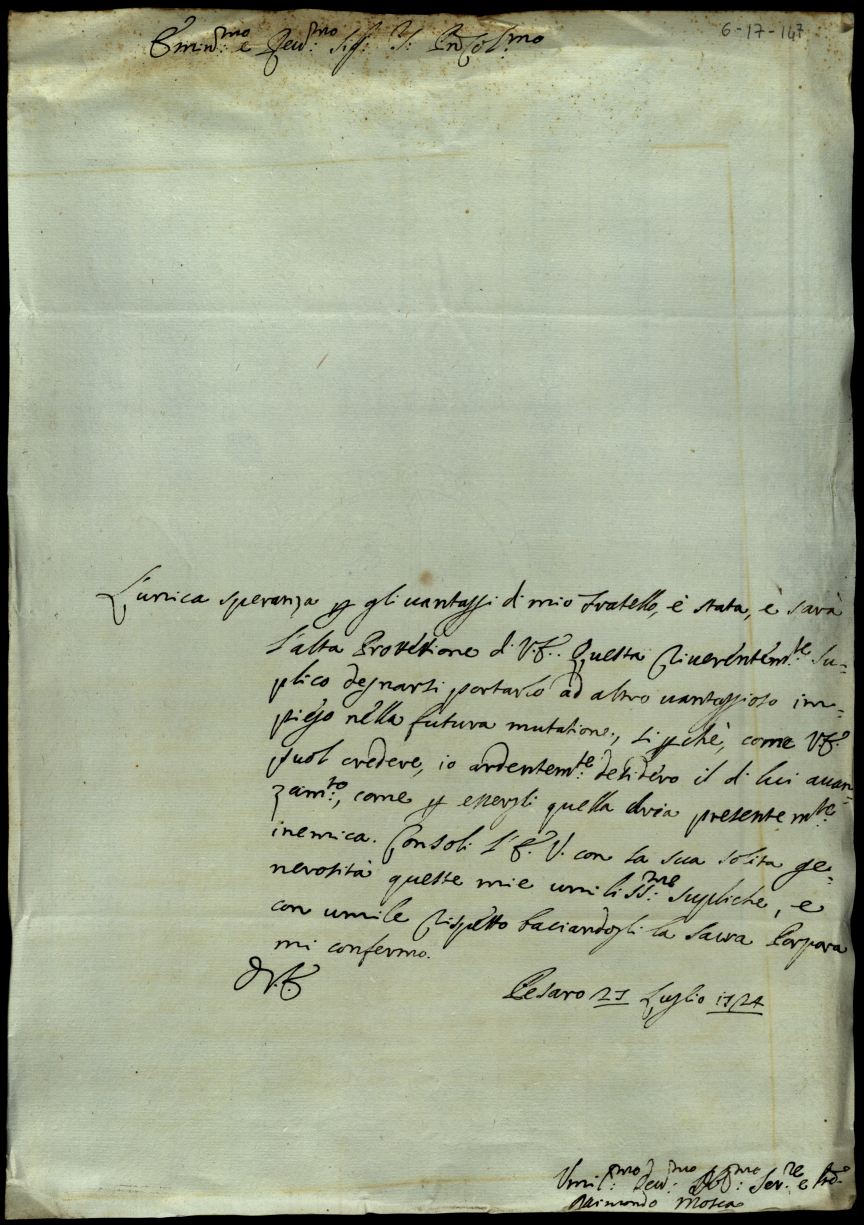 6-17-147
Emin:mo e Rev:mo Sig: P: Col:mo
L'unica speranza p gli vantaggi di mio Fratello, è stata, e sarà
l'alta Protetione di V.E.. Questa riverentem:te su=
plico degnarsi portarlo ad altro vantaggioso im=
piego nella futura mutatione, sì p chè, come V.E.
puol credere, io ardentem:te desidero il di lui avan=
zam:to, come p essergli quella Aria presentem:te
inemica. Consoli l'E.V. con la sua solita ge=
nerosità queste mie umiliss:me supliche, e
con umile rispetto baciandogli la Sacra Porpora
mi confermo.
D V.E.
Pesaro 21 Luglio 1724
Umil:mo Dev:mo Obb:mo Ser:re e
Raimondo Mosca